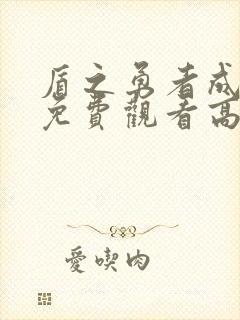 盾之勇者成
免費觀看高
愛喫肉